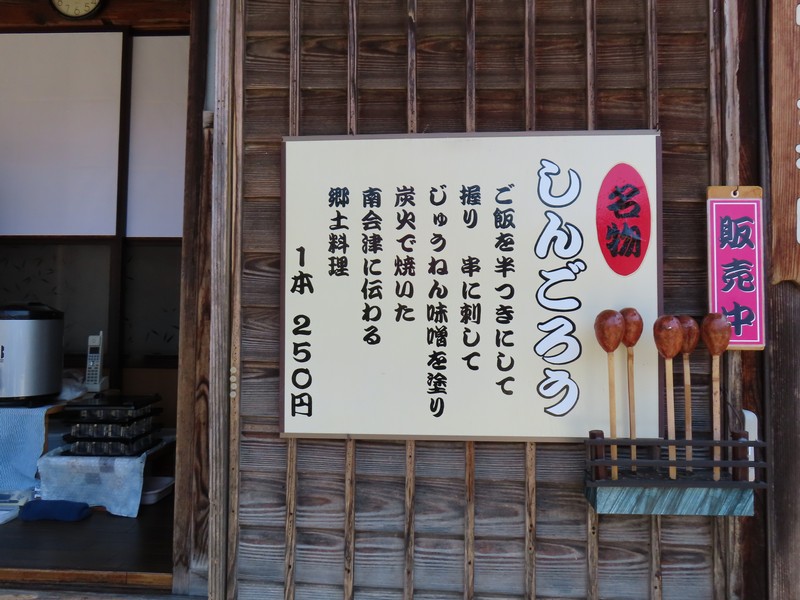 名物
しんごろう
ご飯を半つきにして
握り 串に刺して
じゅうねん味噌を塗り
炭火で焼いた
南会津に伝わる
郷土料理
1本 250円
販売中